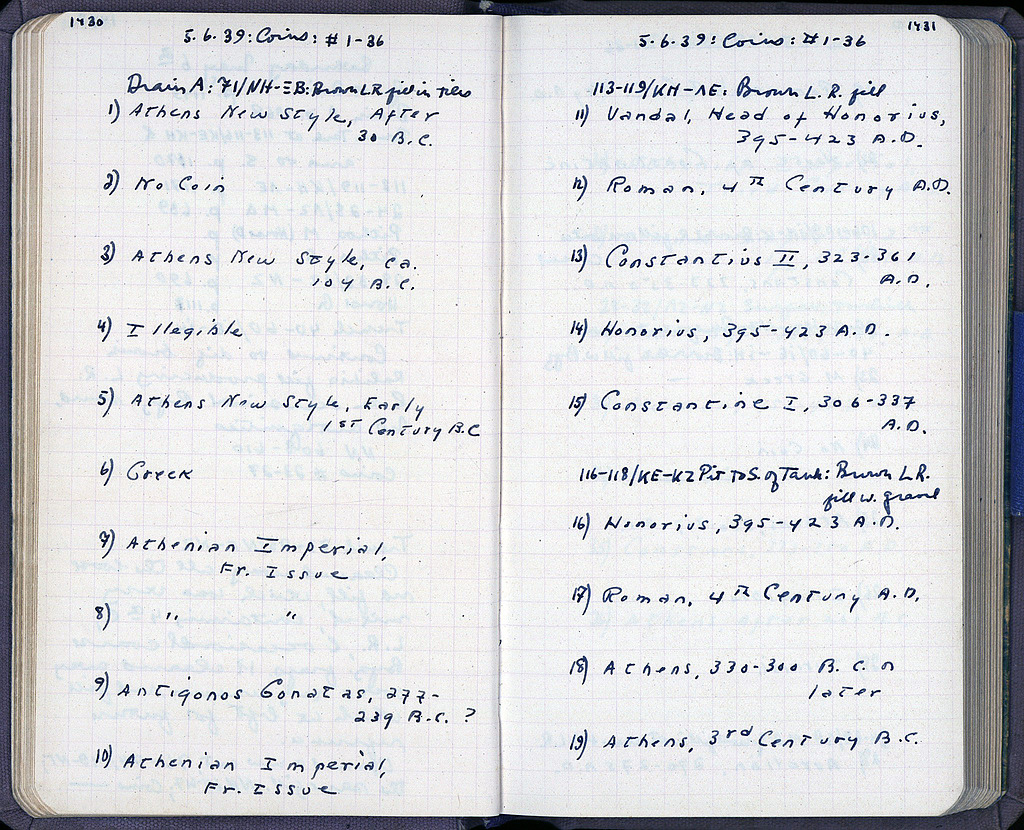 1430
5.6.39: Coins: #1-36
Drain A: 71/NH-ΞB: Brown LR fill in tiles
1) Athens New Style, After
30 B.C.
2) No Coin
3) Athens New Style, ca.
104 B.C.
4) Illegible
5) Athens New Style, Early
1st Century B.C
6) Greek
7) Athenian Imperial,
Fr. Issue
8) " "
9) Antigonos Gonatas, 277-
239 B.C. ?
10) Athenian Imperial,
Fr. Issue
1431
5.6.39: Coins: #1-36
113-119/KH-ΛE: Brown L.R. fill
11) Vandal, Head of Honorius,
395-423 A.D.
12) Roman, 4th Century A.D.
13) Constantius II, 323-361
A.D.
14) Honorius, 395-423 A.D.
15) Constantine I, 306-337
A.D.
116-118/KE-KZ Pit to S. of Tank: Brown L.R.
fill w. gravel
16) Honorius, 395-423 A.D.
17) Roman, 4th Century A.D.
18) Athens, 330-300 B.C. or
later
19) Athens, 3rd Century B.C.